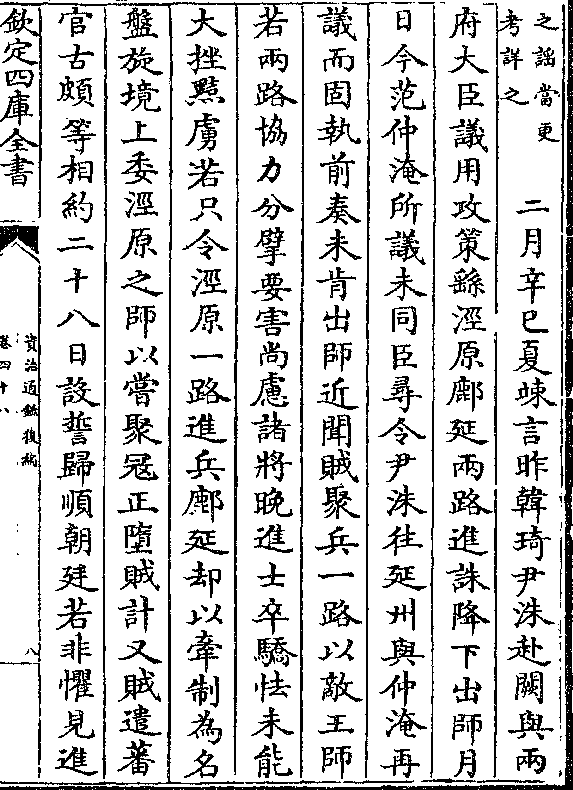 之謡當更
考詳之
二月辛巳夏竦言昨韓琦尹洙赴闕與兩
府大臣議用攻策繇涇原鄜延兩路進誅降下出師月
日今范仲淹所議未同臣尋令尹洙往延州與仲淹再
議而固執前奏未肯出師近聞賊聚兵一路以敵王師
若兩路協力分擘要害尚慮諸將晚進士卒驕怯未能
大挫黠虜若只令涇原一路進兵鄜延却以牽制為名
盤旋境上委涇原之師以嘗聚寇正墮賊計又賊遣蕃
官古頗等相約二十八日設誓歸順朝廷若非懼見進
欽定四庫全書
資治通鑑後編
卷四十八
八